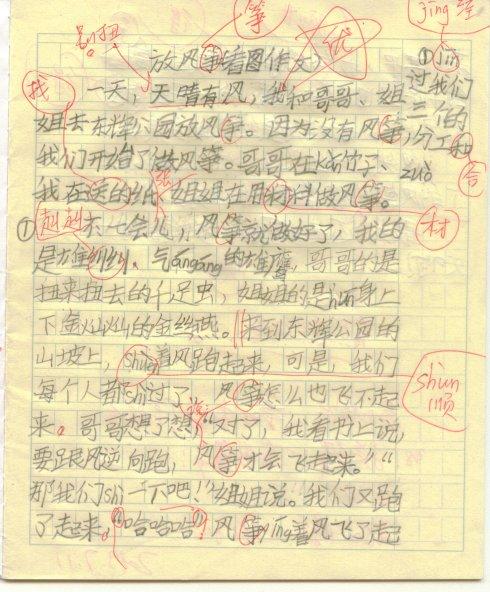 别扭
筝
纸
jīng 经
放风筝(看图作文)
①jīn
找
一天，天晴有风，我和哥哥、姐
过我们
姐去东辉公园放风筝。因为没有风筝，
三个的
我们开始了做风筝。哥哥在kǎn竹子、
分工和
zuò
我在送的纸、姐姐在用材料做风筝。
合
① 不一会儿，风筝就做好了，我的
材
是雄纠纠、气áng áng的雄鹰，哥哥的是
扭来扭去的千足虫，姐姐的是身上
下金灿灿的金丝燕。来到东辉公园的
山坡上，shùn着风跑起来，可是，我们
每个人都shì过了，风筝怎么也飞不起
shùn
顺
来。哥哥想了想："对了，我看书上说，
要跟风逆向跑，风筝才会飞起来。""
那我们shì一下吧！"姐姐说。我们又跑
了起来，"哈哈哈！"风筝yíng着风飞了起